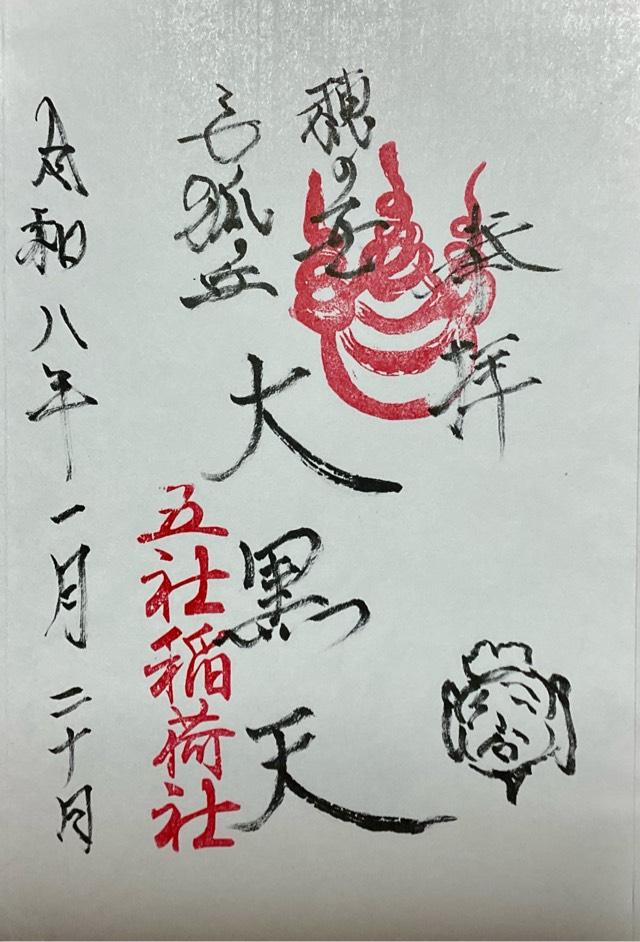 奉拝
穂の
狐丘
大黒天
五社稲荷社
令和八年一月二十日